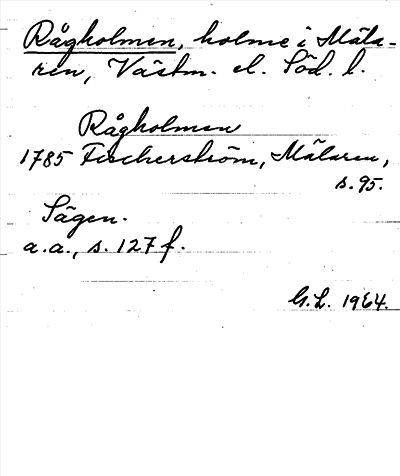 Rågholmen, holme i Mäla-
ren, Västm. el. Söd. l.
Rågholmen
1785 Fischerström, Mälaren,
s. 95.
Sägen.
a.a., s. 127 f.
G.L. 1964.